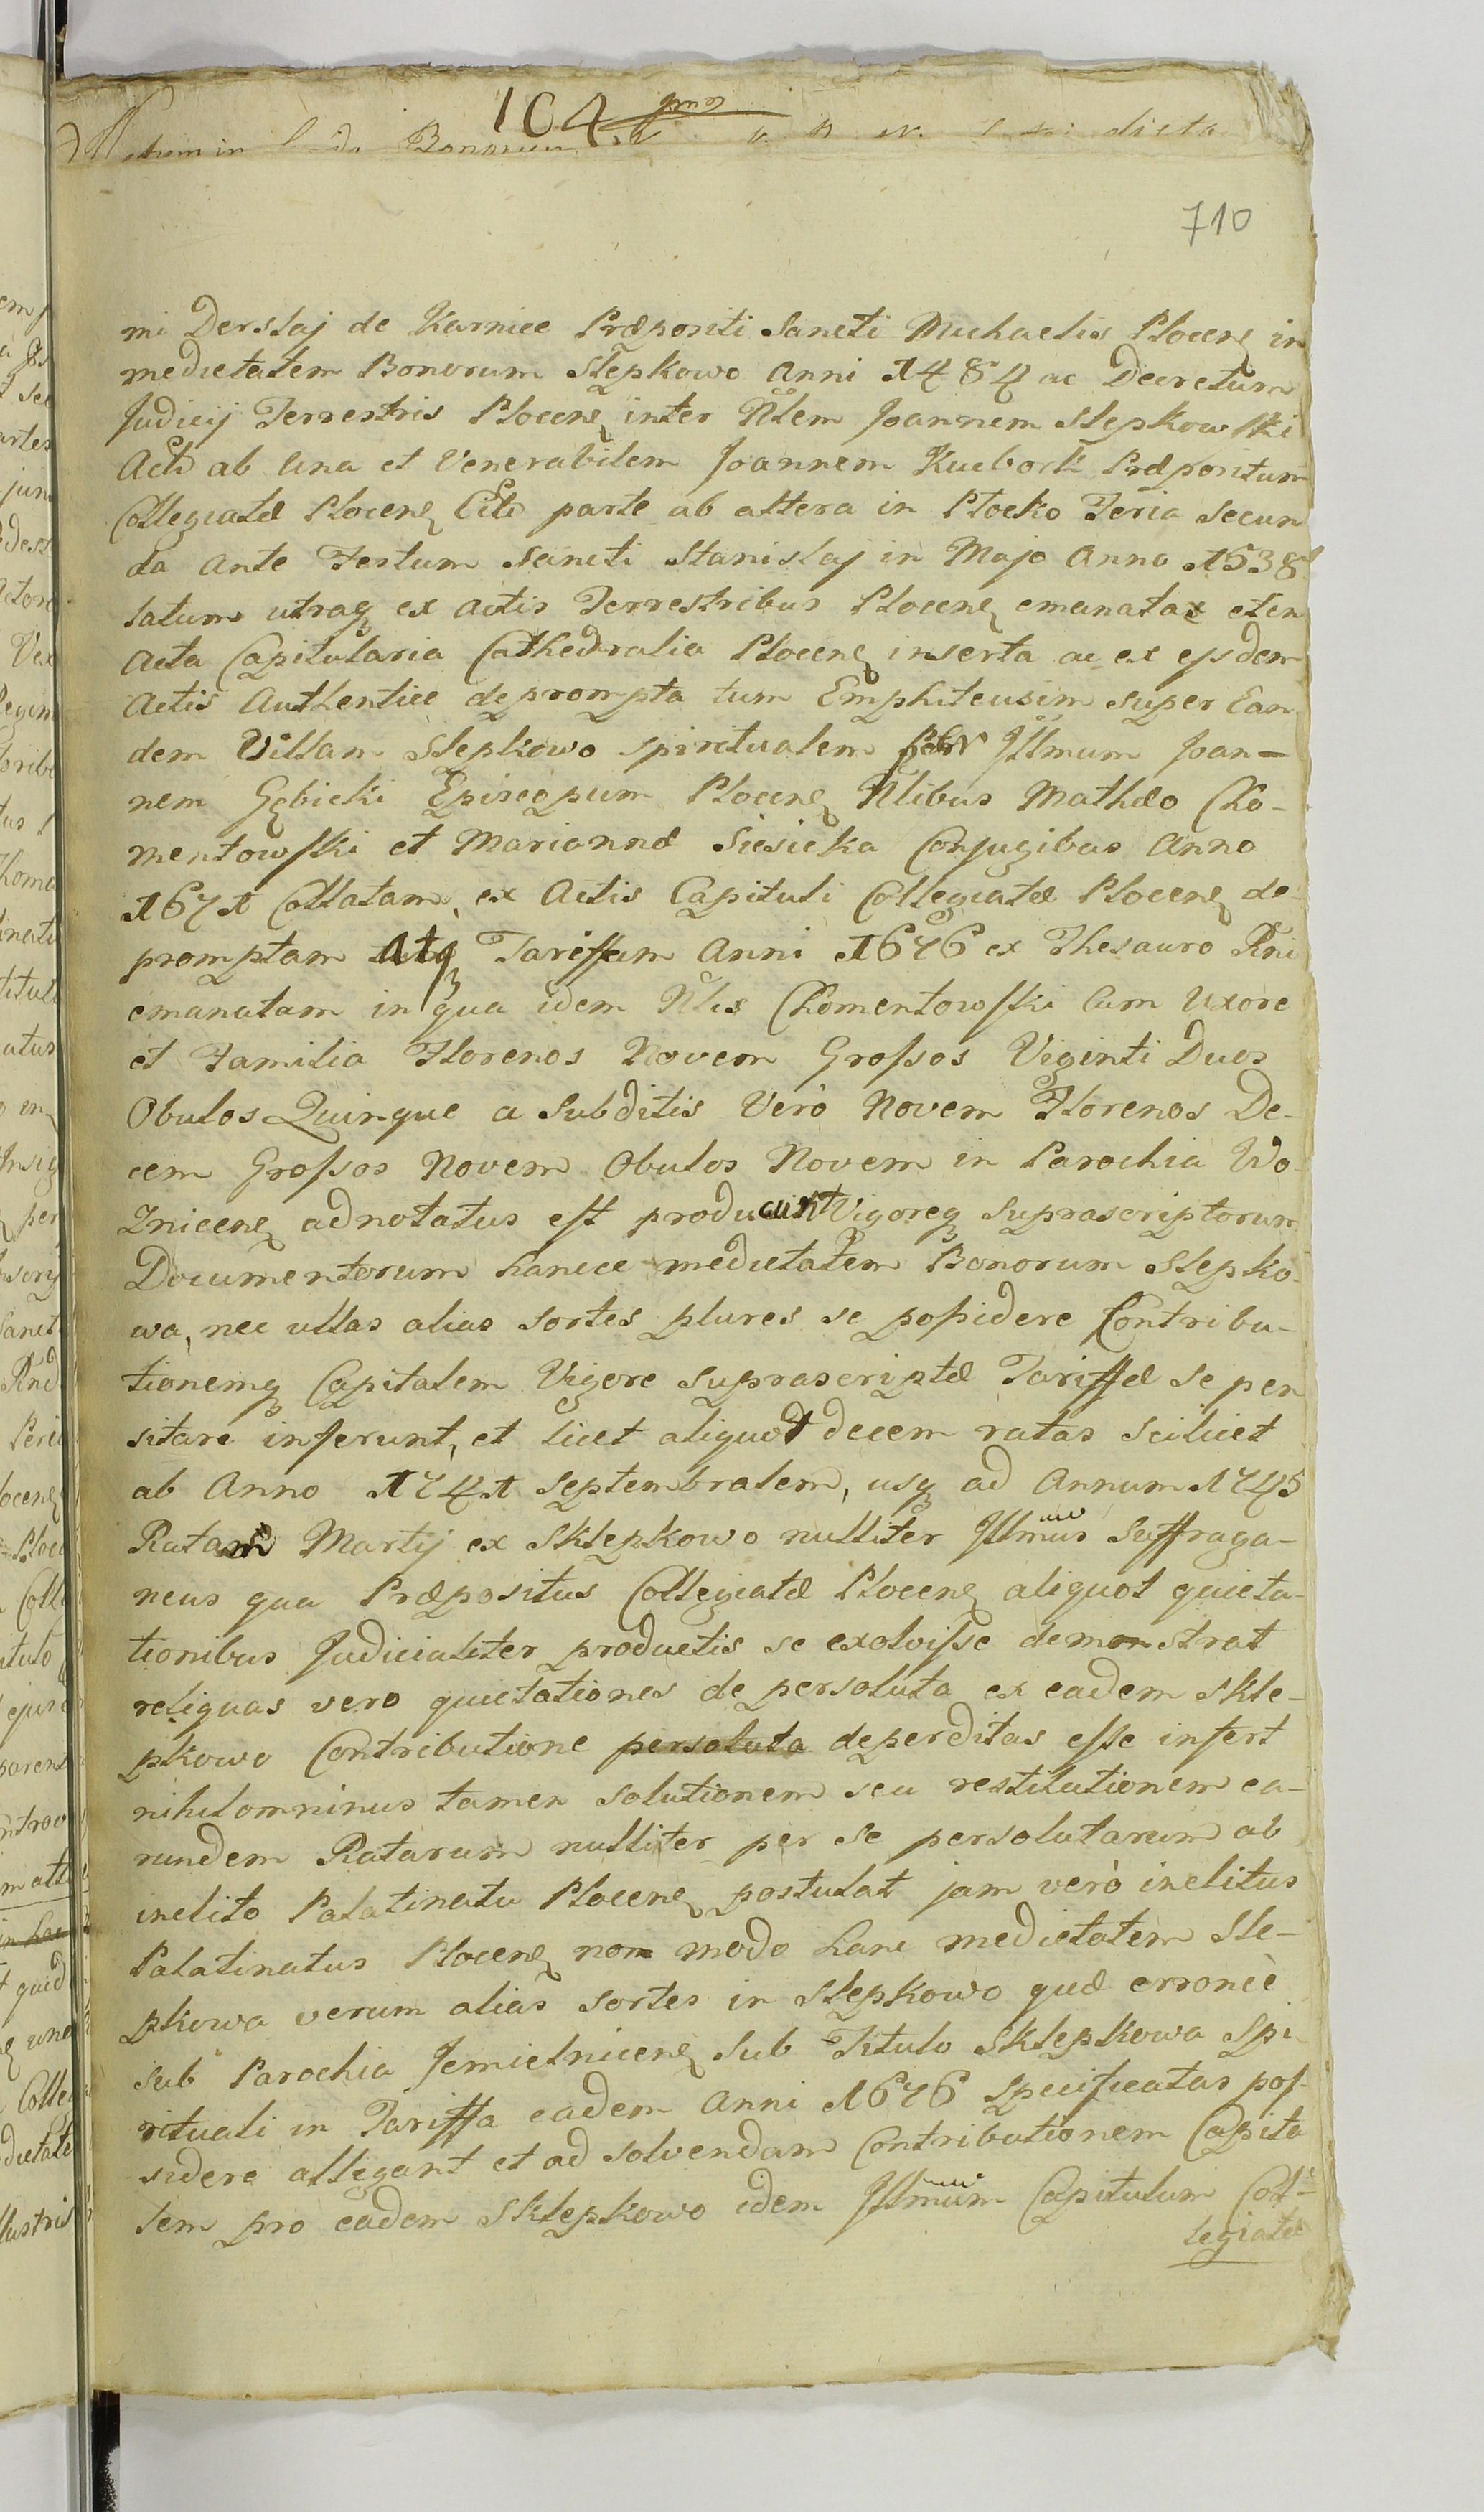 104
Bonorum dicta
710
mi Derslaj de Karnice Præpositi Sancti Michaelis Plocenȩ in
medietatem Bonorum Slepkowo Anni 1484 ac Decretum
Judicij Terrestris Plocenȩ inter Nlem Joannem Slepkowski
Acto ab una et Venerabilem Joannem Kucbork Præpositum
Collegiatæ Plocenȩ Cito parte ab altera in Plocko Feria Secun
da Ante Festum Sancti Stanislaj in Majo Anno 1538
latum utraq ex actis Terrestribus Plocenȩ emanata et in
Acta Capitularia Cathedralia Plocenȩ inserta ac ex ejsdem
Actis Authentice deprompta tum Emphiteusim super Ean
dem Villam Slepkowo spiritualem per Jllmum Joan=
nem Gębicki Episcopum Plocenȩ Nlibus Mathæo Cho-
mentowski et Mariannæ Siesicka Conjugibus Anno
1671 Collatam, ex Actis Capituli Collegiatæ Plocenȩ de
promptam Atq Tariffam Anni 1676 ex Thesauro Rni
emanatam in qua idem Nlis Chomentowski Cum Uxore
et Familia Florenos Novem Grossos Viginti Duos
Obulos Quinque a Subditis Verò Novem Florenos De-
cem Grossos Novem Obulos Novem in Parochia Wo-
Znicenȩ adnotatus est producunt Vigoreq suprascriptorum
Documentorum hancce medietatem Bonorum Slepko-
wa, nec ullas alias sortes plures se possidere Contribu-
tionemq Capitalem Vigore suprascriptæ Tariffæ se pen
sitare inferunt, et licet aliquot decem ratas scilicet
ab Anno 1741 Septembralem, usq ad Annum 1745
Ratam Martij ex Sklepkowo nulliter Jllmus Suffraga-
neus qua Præpositus Collegiatæ Plocenȩ aliquot quieta-
tionibus Judicialiter productis se exolvisse demonstrat
reliquas vero quietationes de persoluta ex eadem Skle-
pkowo Contributione persoluta deperditas esse infert
nihilominus tamen solutionem seu restitutionem ea-
rundem Ratarum nulliter per se persolutarum ab
inclito Palatinatu Plocenȩ postulat jam verò inclitus
Palatinatus Plocenȩ non modo hanc medietatem Sle-
pkowa verum alias sortes in Slepkowo quæ erroneè
sub Parochia Jemielnicenȩ sub Titulo Sklepkowa Spi-
rituali in Tariffa eadem Anni 1676 specificatas pos-
sidere allegant et ad solvendam Contributionem Capita
lem pro eadem Sklepkowo idem Jllmum Capitulum Col-
legiatæ